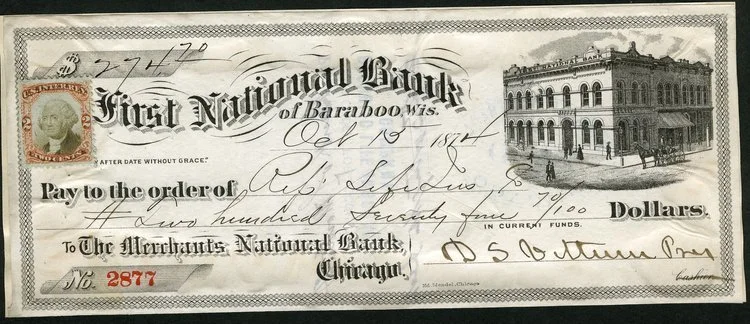 $ 274.70
U.S. INTER. REV.
2 2
TWO CENTS
First National Bank
of Baraboo, Wis.
NATIONAL BANK
Oct 13 1874
AFTER DATE WITHOUT GRACE."
Pay to the order of Rep' Life Ins
Two hundred Seventy four 70/100 Dollars.
IN CURRENT FUNDS.
To The Merchants National Bank,
Chicago.
D S Vittum Pres
Cashier
No. 2877
Ed. Mendel, Chicago